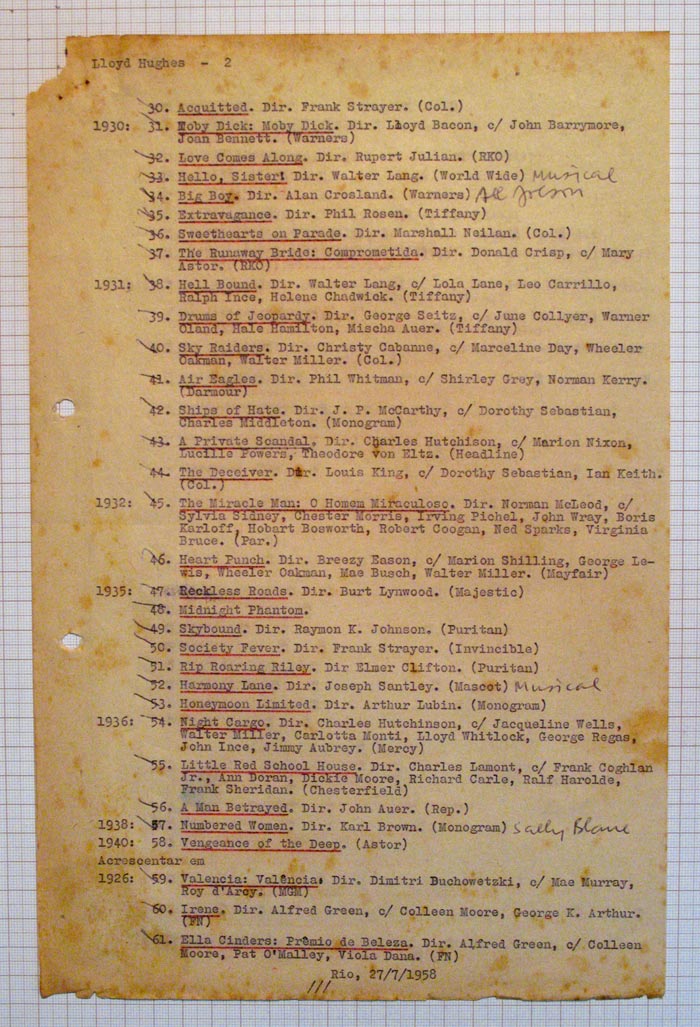 Lloyd Hughes - 2
30. Acquitted. Dir. Frank Strayer. (Col.)
1930: 31. Moby Dick: Moby Dick. Dir. Lloyd Bacon, c/ John Barrymore,
Joan Bennett. (Warners)
32. Love Comes Along. Dir. Rupert Julian. (RKO)
33. Hello, Sister! Dir. Walter Lang. (World Wide) Musical
34. Big Boy. Dir. Alan Crosland. (Warners) All Jolson
35. Extravagance. Dir. Phil Rosen. (Tiffany)
36. Sweethearts on Parade. Dir. Marshall Neilan. (Col.)
37. The Runaway Bride: Comprometida. Dir. Donald Crisp, c/ Mary
Astor. (RKO)
1931: 38. Hell Bound. Dir. Walter Lang, c/ Lola Lane, Leo Carrillo,
Ralph Ince, Helene Chadwick. (Tiffany)
39. Drums of Jeopardy. Dir. George Seitz, c/ June Collyer, Warner
Oland, Hale Hamilton, Mischa Auer. (Tiffany)
40. Sky Raiders. Dir. Christy Cabanne, c/ Marceline Day, Wheeler
Oakman, Walter Miller. (Col.)
41. Air Eagles. Dir. Phil Whitman, c/ Shirley Grey, Norman Kerry.
(Darmour)
42. Ships of Hate. Dir. J. P. McCarthy, c/ Dorothy Sebastian,
Charles Middleton. (Monogram)
43. A Private Scandal. Dir. Charles Hutchison, c/ Marion Nixon,
Lucille Powers, Theodore von Eltz. (Headline)
44. The Deceiver. Dir. Louis King, c/ Dorothy Sebastian, Ian Keith.
(Col.)
1932: 45. The Miracle Man: O Homem Miraculoso. Dir. Norman McLeod, c/
Sylvia Sidney, Chester Morris, Irving Pichel, John Wray, Boris
Karloff, Hobart Bosworth, Robert Coogan, Ned Sparks, Virginia
Bruce. (Par.)
46. Heart Punch. Dir. Breezy Eason, c/ Marion Shilling, George Le-
wis, Wheeler Oakman, Mae Busch, Walter Miller. (Mayfair)
1935: 47. Reckless Roads. Dir. Burt Lynwood. (Majestic)
48. Midnight Phantom.
49. Skybound. Dir. Raymon K. Johnson. (Puritan)
50. Society Fever. Dir. Frank Strayer. (Invincible)
51. Rip Roaring Riley. Dir Elmer Clifton. (Puritan)
52. Harmony Lane. Dir. Joseph Santley. (Mascot) Musical
53. Honeymoon Limited. Dir. Arthur Lubin. (Monogram)
1936: 54. Night Cargo. Dir. Charles Hutchinson, c/ Jacqueline Wells,
Walter Miller, Carlotta Monti, Lloyd Whitlock, George Regas,
John Ince, Jimmy Aubrey. (Mercy)
55. Little Red School House. Dir. Charles Lamont, c/ Frank Coghlan
Jr., Ann Doran, Dickie Moore, Richard Carle, Ralf Harolde,
Frank Sheridan. (Chesterfield)
56. A Man Betrayed. Dir. John Auer. (Rep.)
1938: 57. Numbered Women. Dir. Karl Brown. (Monogram) Sally Blane
1940: 58. Vengeance of the Deep. (Astor)
Acrescentar em
1926: 59. Valencia: Valência. Dir. Dimitri Buchowetzki, c/ Mae Murray,
Roy d'Arcy. (MGM)
60. Irene. Dir. Alfred Green, c/ Colleen Moore, George K. Arthur.
(FN)
61. Ella Cinders: Prêmio de Beleza. Dir. Alfred Green, c/ Colleen
Moore, Pat O'Malley, Viola Dana. (FN)
Rio, 27/7/1958
///